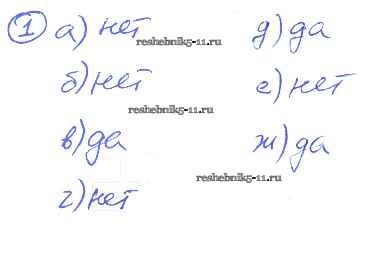 1 а) нет
б) нет
в) да
г) нет
д) да
е) нет
ж) да
reshebnik5-11.ru
reshebnik5-11.ru
reshebnik5-11.ru